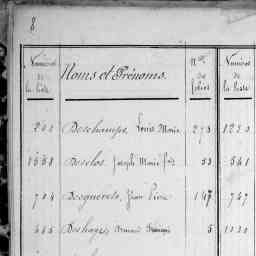 8
Numéros de la liste Noms et Prénoms. Nos de folios Numéros de la liste
Deschamps, Louis Marie 273 1220
Desclos, Joseph Marie fils 53 541
704 Desgnérets, Jean Pierre 147 747
Deshayes Armand François 5